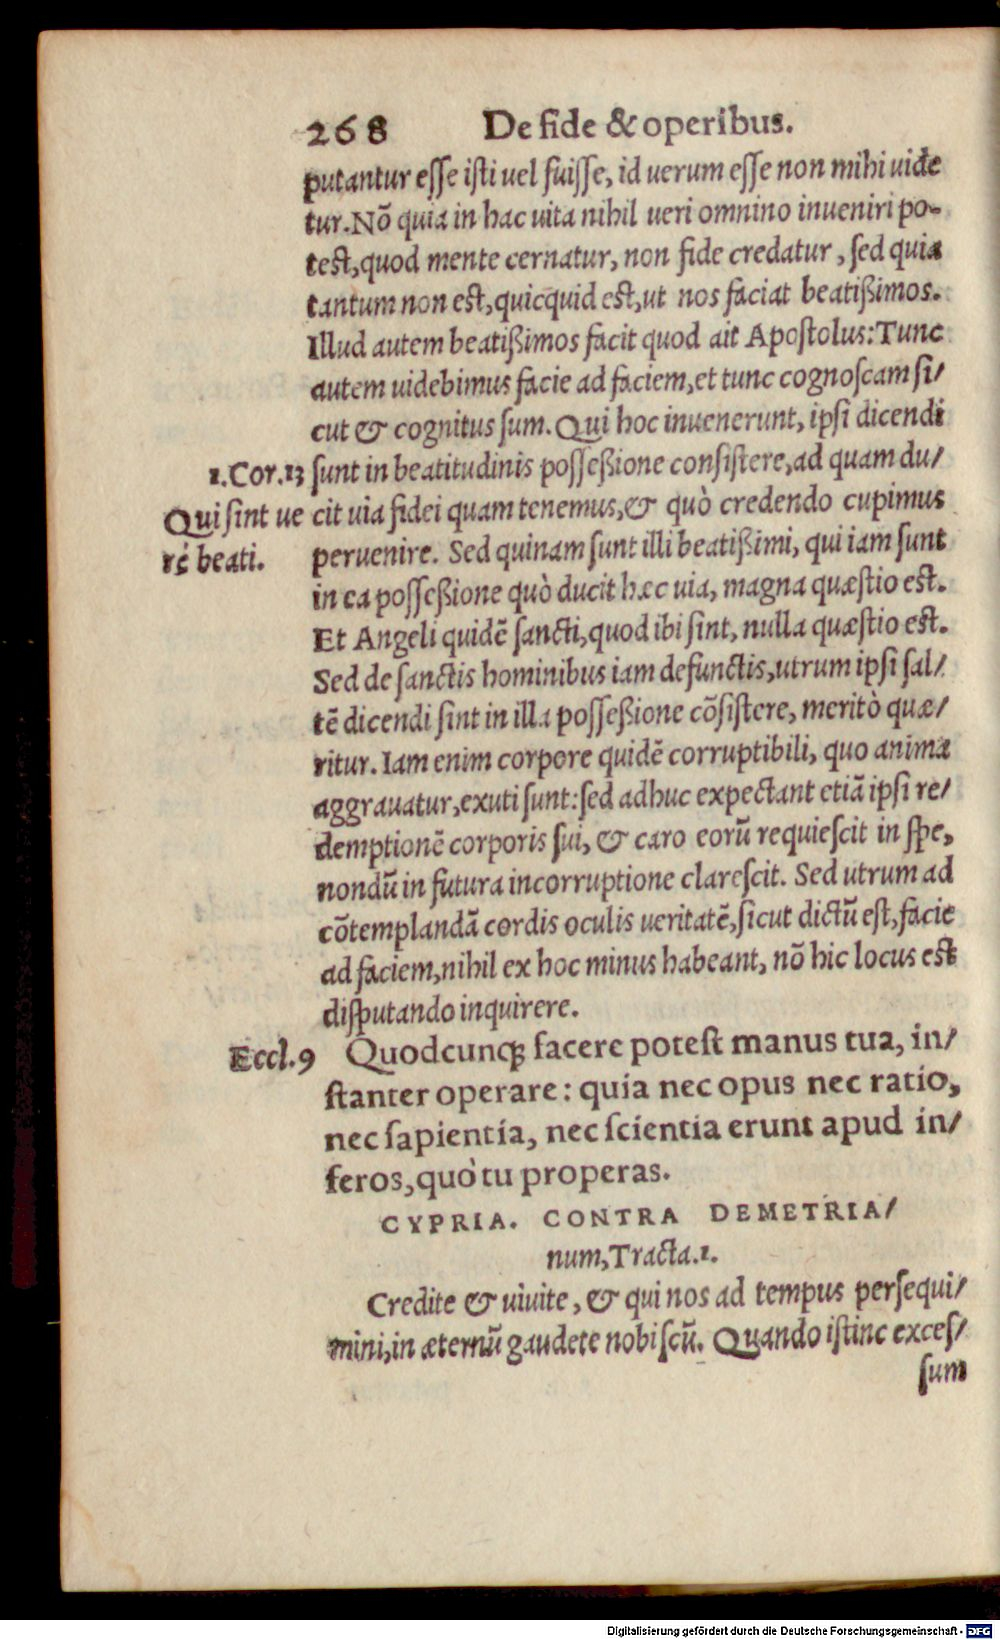 268 De fide & operibus.
putantur esse isti uel fuisse, id uerum esse non mihi uide
tur. Nõ quia in hac uita nihil ueri omnino inueniri po-
test, quod mente cernatur, non fide credatur, sed quia
tantum non est, quicquid est, ut nos faciat beatißimos.
Illud autem beatißimos facit quod ait Apostolus: Tunc
autem uidebimus facie ad faciem, et tunc cognoscam si/
cut & cognitus sum. Qui hoc inuenerunt, ipsi dicendi
1.Cor.13 sunt in beatitudinis posseßione consistere, ad quam du/
Qui sint ue cit uia fidei quam tenemus, & quò credendo cupimus
rè beati. peruenire. Sed quinam sunt illi beatißimi, qui iam sunt
in ea posseßione quò ducit hæc uia, magna quæstio est.
Et Angeli quidẽ sancti, quod ibi sint, nulla quæstio est.
Sed de sanctis hominibus iam defunctis, utrum ipsi sal/
tẽ dicendi sint in illa posseßione cõsistere, meritò quæ/
ritur. Iam enim corpore quidẽ corruptibili, quo anima
aggrauatur, exuti sunt: sed adhuc expectant etiã ipsi re/
demptionẽ corporis sui, & caro eorũ requiescit in spe,
nondũ in futura incorruptione clarescit. Sed utrum ad
cõtemplandã cordis oculis ueritatẽ, sicut dictũ est, facie
ad faciem, nihil ex hoc minus habeant, nõ hic locus est
disputando inquirere.
Eccl.9 Quodcunq; facere potest manus tua, in/
stanter operare: quia nec opus nec ratio,
nec sapientia, nec scientia erunt apud in/
feros, quò tu properas.
CYPRIA. CONTRA DEMETRIA/
num, Tracta.1.
Credite & uiuite, & qui nos ad tempus persequi/
mini, in æternũ gaudete nobiscũ. Quando istinc exces/
sum
Digitalisierung gefördert durch die Deutsche Forschungsgemeinschaft - DFG